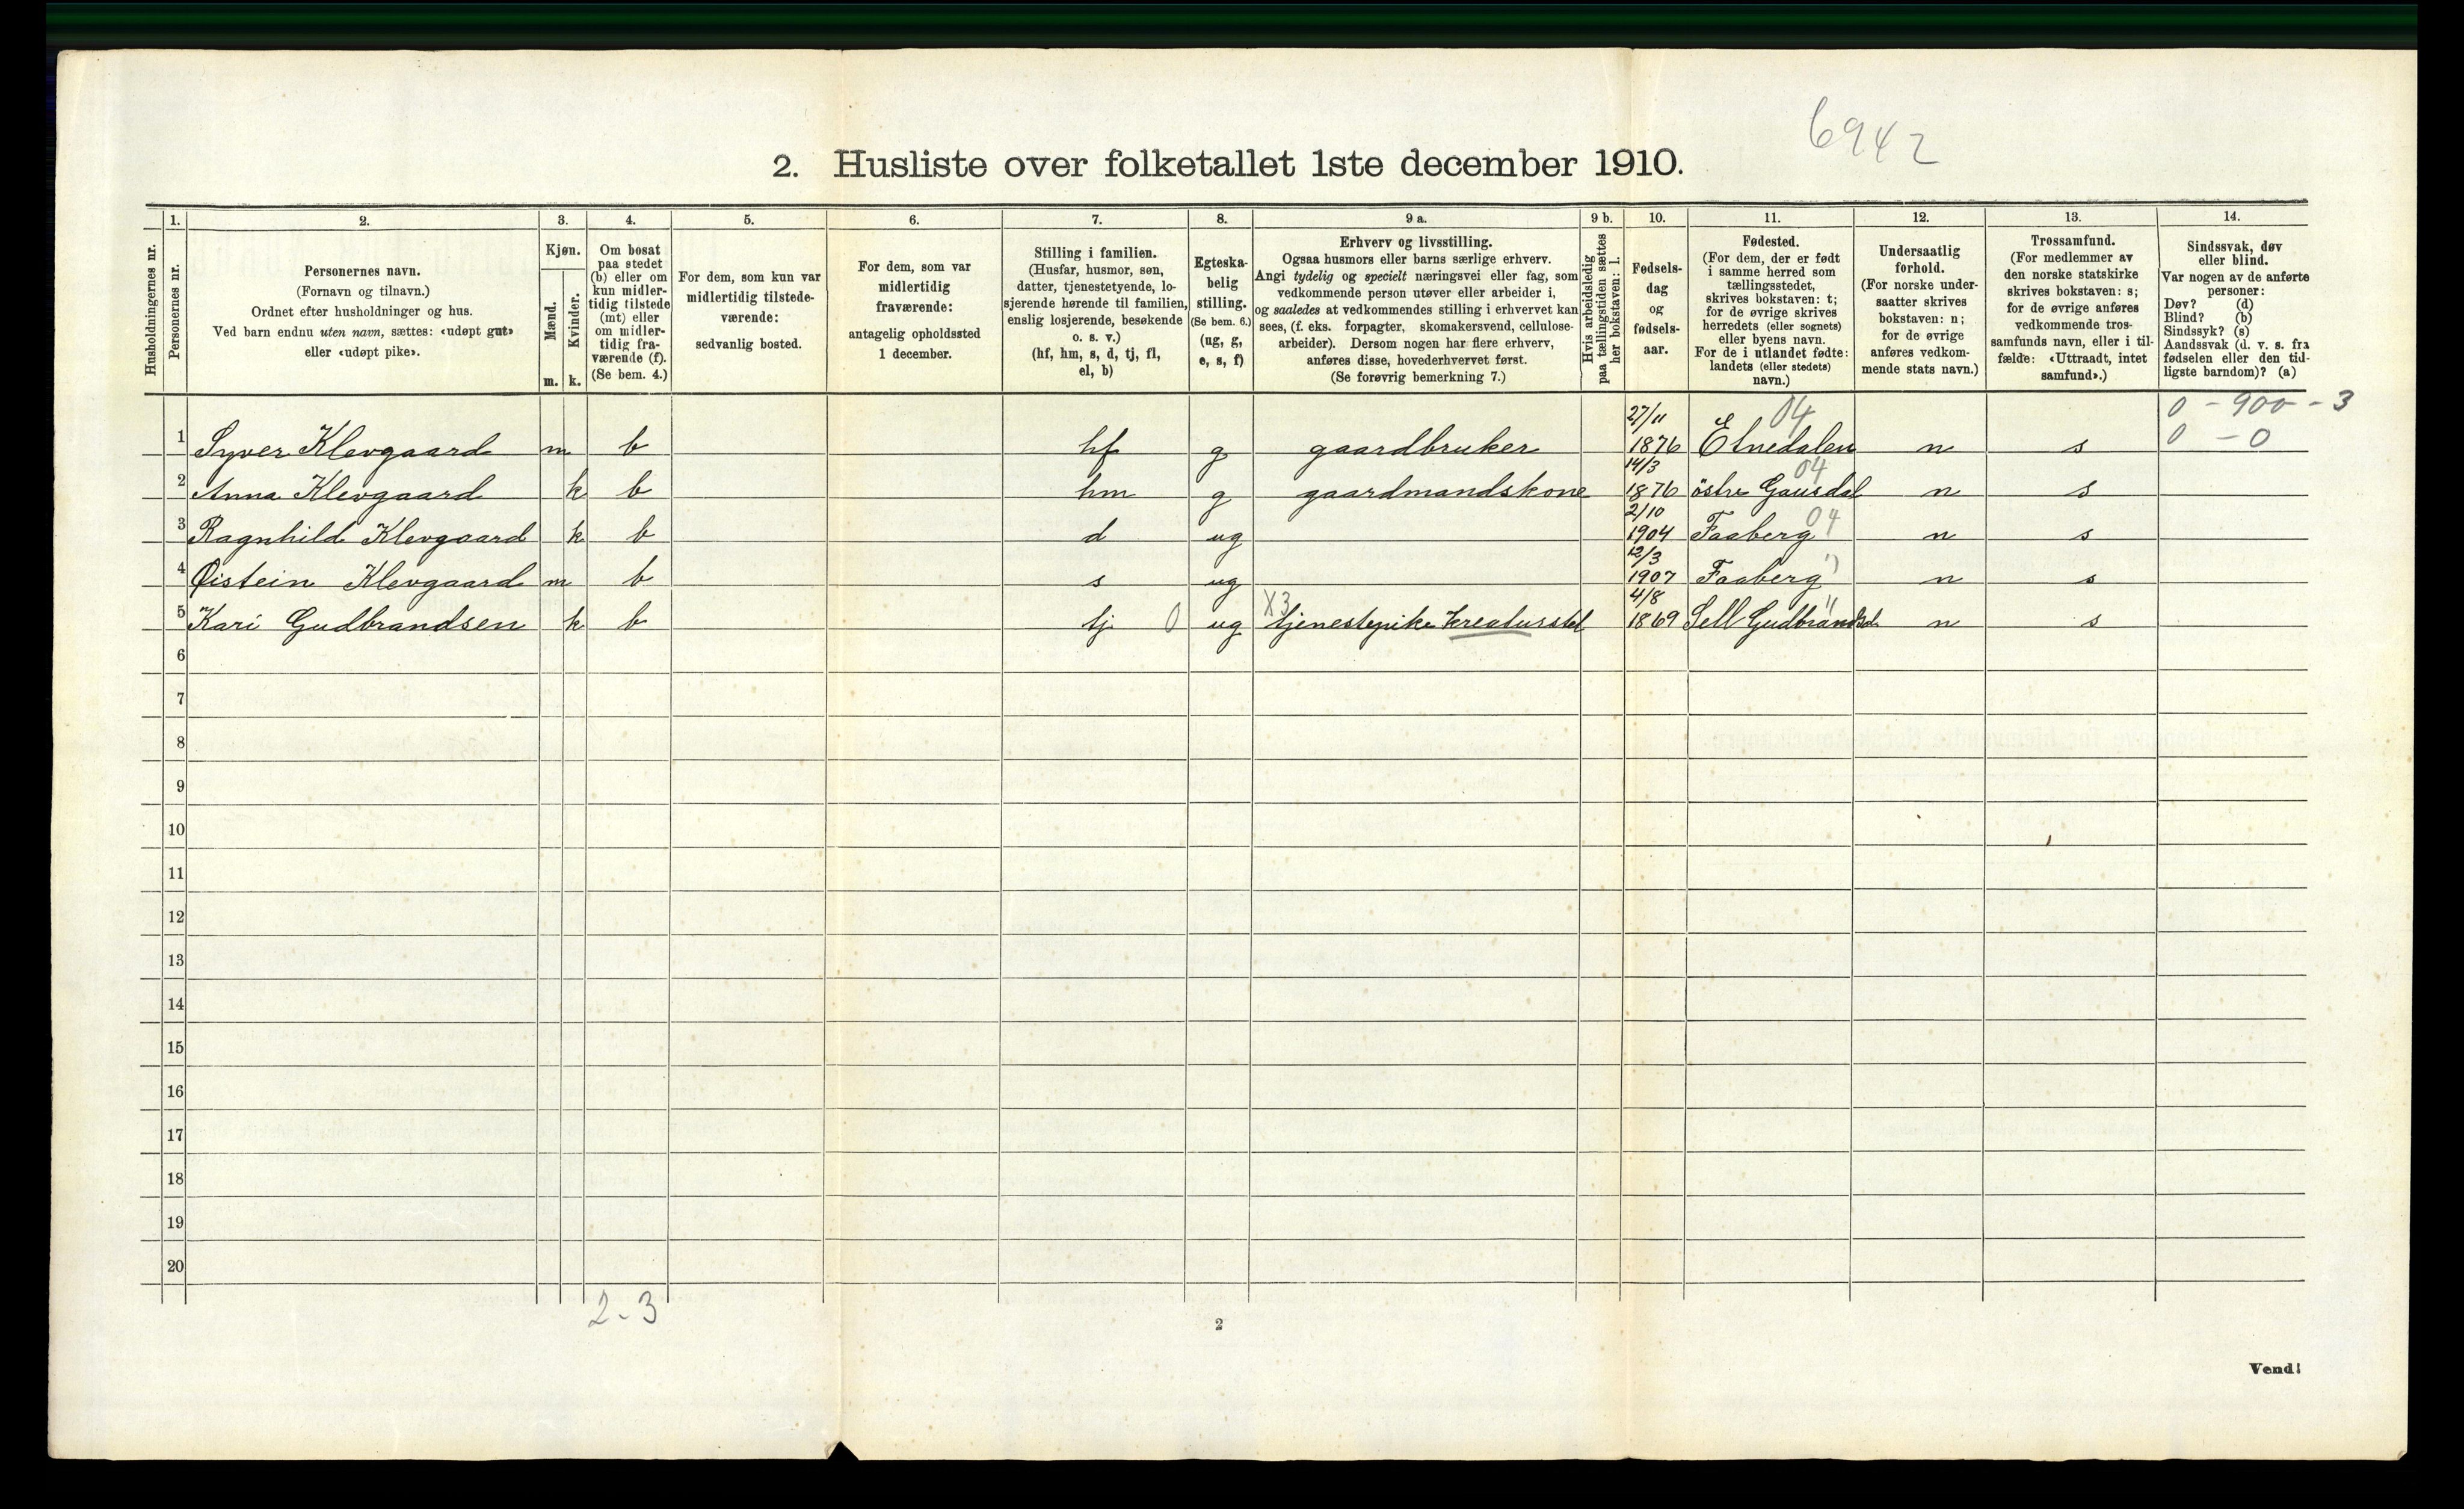 6942
2. Husliste over folketallet 1ste december 1910.
Husholdningernes nr.
1.
Personernes nr.
2.
Personernes navn.
(Fornavn og tilnavn.)
Ordnet efter husholdninger og hus.
Ved barn endnu uten navn, sættes: «udøpt gut»
eller «udøpt pike».
3.
Kjøn.
Mænd.
Kvinder.
m. k.
4.
Om bosat
paa stedet
(b) eller om
kun midler-
tidig tilstede
(mt) eller
om midler-
tidig fra-
værende (f).
(Se bem. 4.)
5.
For dem, som kun var
midlertidig tilstede-
værende:
sedvanlig bosted.
6.
For dem, som var
midlertidig
fraværende:
antagelig opholdssted
1 december.
7.
Stilling i familien.
(Husfar, husmor, søn,
datter, tjenestetyende, lo-
sjerende hørende til familien,
enslig losjerende, besøkende
o. s. v.)
(hf, hm, s, d, tj, fl,
el, b)
8.
Egteska-
belig
stilling.
(Se bem. 6.)
(ug, g,
e, s, f)
9 a.
Erhverv og livsstilling.
Ogsaa husmors eller barns særlige erhverv.
Angi tydelig og specielt næringsvei eller fag, som
vedkommende person utøver eller arbeider i,
og saaledes at vedkommendes stilling i erhvervet kan
sees, (f. eks. forpagter, skomakersvend, cellulose-
arbeider). Dersom nogen har flere erhverv,
anføres disse, hovederhvervet først.
(Se forøvrig bemerkning 7.)
9 b.
Hvis arbeidsledig
paa tællingstiden sættes
her bokstaven: l.
10.
Fødsels-
dag
og
fødsels-
aar.
11.
Fødested.
(For dem, der er født
i samme herred som
tællingsstedet,
skrives bokstaven: t;
for de øvrige skrives
herredets (eller sognets)
eller byens navn.
For de i utlandet fødte:
landets (eller stedets)
navn.)
12.
Undersaatlig
forhold.
(For norske under-
saatter skrives
bokstaven: n;
for de øvrige
anføres vedkom-
mende stats navn.)
13.
Trossamfund.
(For medlemmer av
den norske statskirke
skrives bokstaven: s;
for de øvrige anføres
vedkommende tros-
samfunds navn, eller i til-
fælde: «Uttraadt, intet
samfund».)
14.
Sindssvak, døv
eller blind.
Var nogen av de anførte
personer:
Døv? (d)
Blind? (b)
Sindssyk? (s)
Aandssvak (d. v. s. fra
fødselen eller den tid-
ligste barndom)? (a)
27/11 04 0 - 900 - 3
1 Syver Klevgaard m b hf g gaardbruker 1876 Etnedalen n s 0 - 0
14/3 04
2 Anna Klevgaard k b hm g gaardmandskone 1876 östre Gausdal n s
2/10 04
3 Ragnhild Klevgaard k b d ug 1904 Faaberg n s
12/3 "
4 Øistein Klevgaard m b s ug 1907 Faaberg n s
X3 4/8 "
5 Kari Gudbrandsen k b tj 0 ug tjenestepike kreaturstel 1869 Sell Gudbrandsd. n s
6
7
8
9
10
11
12
13
14
15
16
17
18
19
20
2-3
2
Vend!